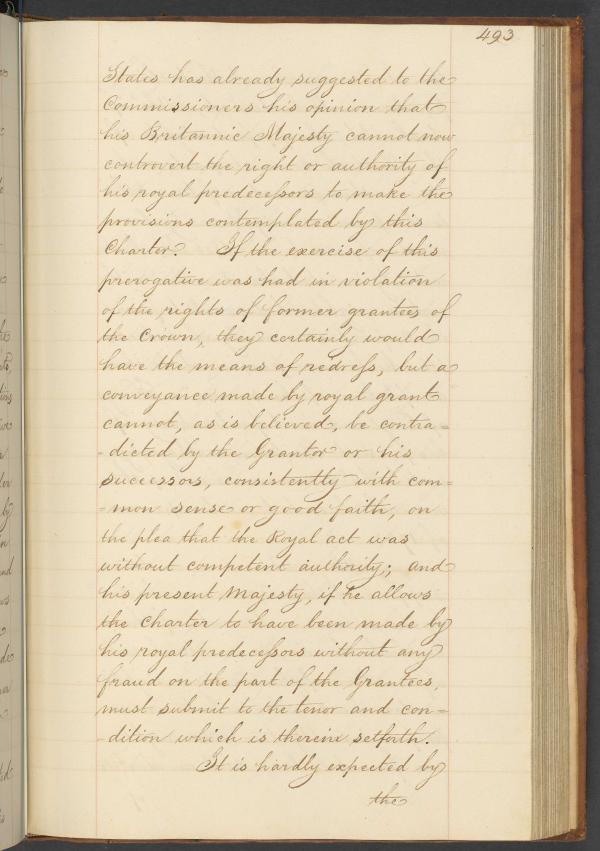 493
States has already suggested to the
Commissioners his opinion that
his Britannic Majesty cannot now
controvert the right or authority of
his royal predecessors to make the
provisions contemplated by this
Charter. If the exercise of this
prerogative was had in violation
of the rights of former grantees of
the Crown, they certainly would
have the means of redress, but a
conveyance made by royal grant
cannot, as is believed, be contra=
-dicted by the Grantor or his
successors, consistently with com=
-mon sense or good faith, on
the plea that the Royal act was
without competent authority; and
his present Majesty, if he allows
the Charter to have been made by
his royal predecessors without any
fraud on the part of the Grantees,
must submit to the tenor and con=
-dition which is therein setforth.
It is hardly expected by
the